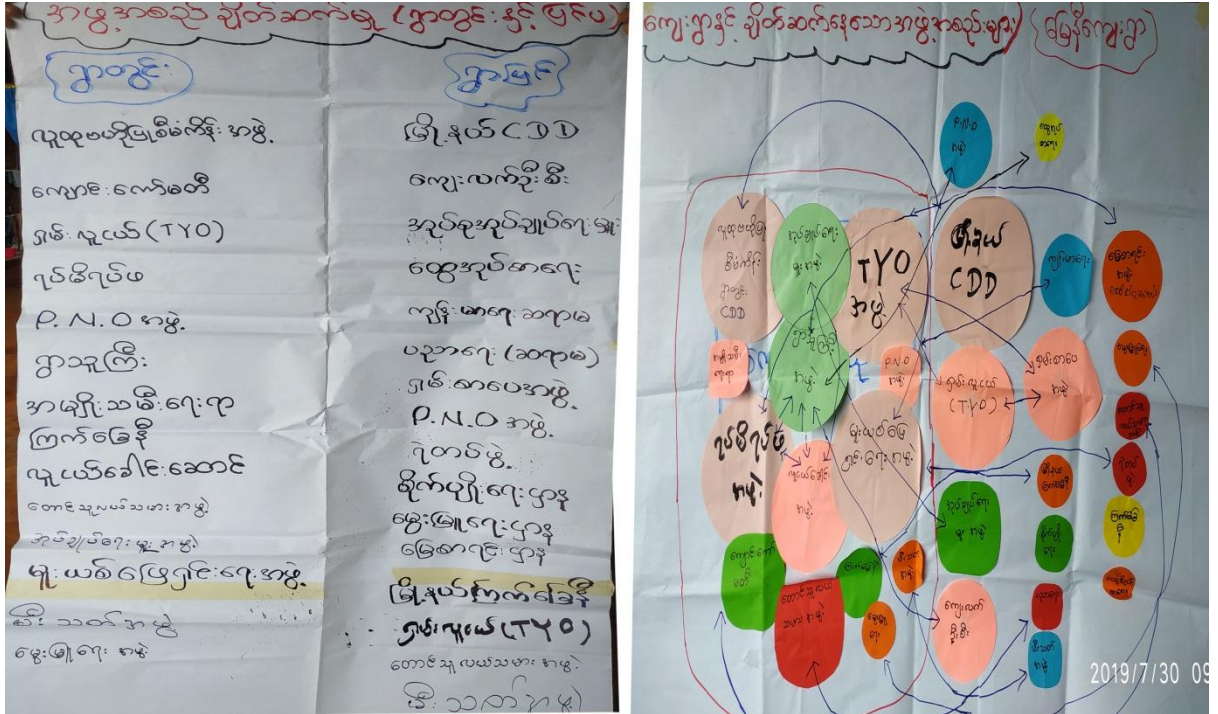 အဖွဲ့အစည်း ချိတ်ဆက်မှု (ရွာတွင်းနှင့် ပြင်ပ)
ရွာတွင်း
လူထုဗဟိုပြုစီမံကိန်းအဖွဲ့
ကျောင်းကော်မတီ
ရှမ်းလူငယ် (TYO)
ရပ်မိရပ်ဖ
P.N.O အဖွဲ့
ရွာသူကြီး
အမျိုးသမီးရေးရာ
ကြက်ခြေနီ
လူငယ်ခေါင်းဆောင်
တောင်သူလယ်သမားအဖွဲ့
အုပ်ချုပ်ရေးမှူးအဖွဲ့
မူးယစ်ဖြေရှင်းရေးအဖွဲ့
မီးသတ်အဖွဲ့
မွေးမြူရေးအဖွဲ့
ရွာပြင်
မြို့နယ် CDD
ကျေးလက်ဦးစီး
အုပ်စုအုပ်ချုပ်ရေးမှူး
ထွေအုပ်စာရေး
ကျန်းမာရေးဆရာမ
ပညာရေး (ဆရာမ)
ရှမ်းစာပေအဖွဲ့
P.N.O အဖွဲ့
ရဲတပ်ဖွဲ့
စိုက်ပျိုးရေးဌာန
မွေးမြူရေးဌာန
မြေစာရင်းဌာန
မြို့နယ်ကြက်ခြေနီ
ရှမ်းလူငယ် (TYO)
တောင်သူလယ်သမားအဖွဲ့
မီးသတ်အဖွဲ့
ကျေးရွာနှင့် ချိတ်ဆက်နေသောအဖွဲ့အစည်းများ (မြေနီကျေးရွာ)
P.N.O
အဖွဲ့
လူထုဗဟိုပြု
စီမံကိန်း
ရွာတွင်း
CDD
အုပ်ချုပ်ရေး
မှူးအဖွဲ့
TYO
အဖွဲ့
မြို့နယ်
CDD
ကျန်းမာရေး
မြေစာရင်း
အဖွဲ့
အမျိုးသမီး
ရေးရာ
ရွာသူကြီး
အဖွဲ့
P.N.O
အဖွဲ့
ရှမ်းလူငယ်
(TYO)
ရှမ်းစာပေ
အဖွဲ့
မွေးမြူရေး
ရပ်မိရပ်ဖ
အဖွဲ့
လူငယ်ခေါင်း
အဖွဲ့
မူးယစ်ဖြေ
ရှင်းရေးအဖွဲ့
မြို့နယ်
ကြက်ခြေနီ
ရဲတပ်
ဖွဲ့
အုပ်ချုပ်ရေး
မှူးအဖွဲ့
စိုက်ပျိုး
ရေး
ကြက်ခြေ
နီ
ကျောင်းကော်
မတီ
တောင်သူလယ်
သမားအဖွဲ့
မီးသတ်
အဖွဲ့
မွေးမြူ
ရေး
ကျေးလက်
ဦးစီး
ပညာရေး
မီးသတ်
အဖွဲ့
2019/7/30 09